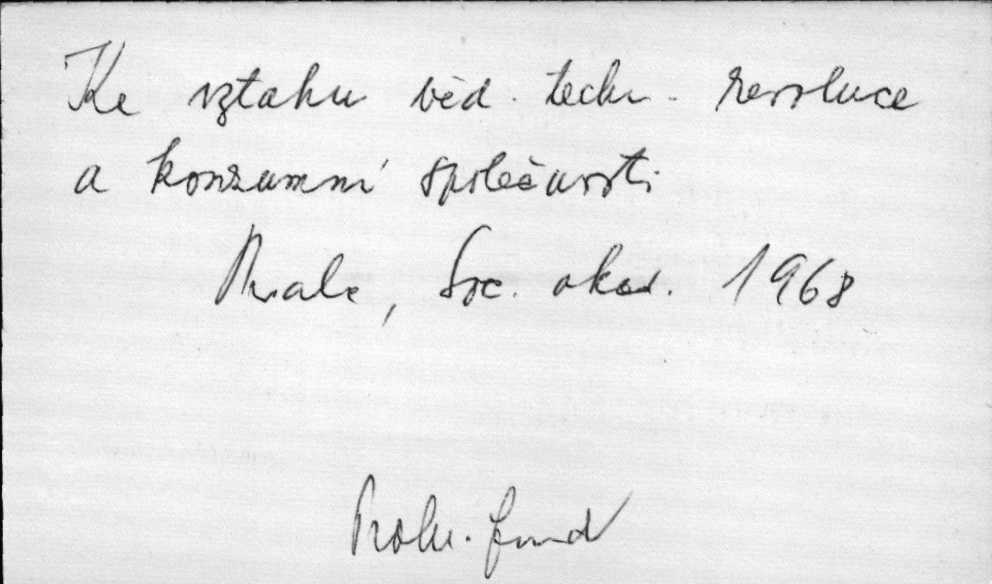 Ke vztahu věd. techn. revoluce
a konzumní společnosti
Praha, Soc. akad. 1968
Prohl. fond